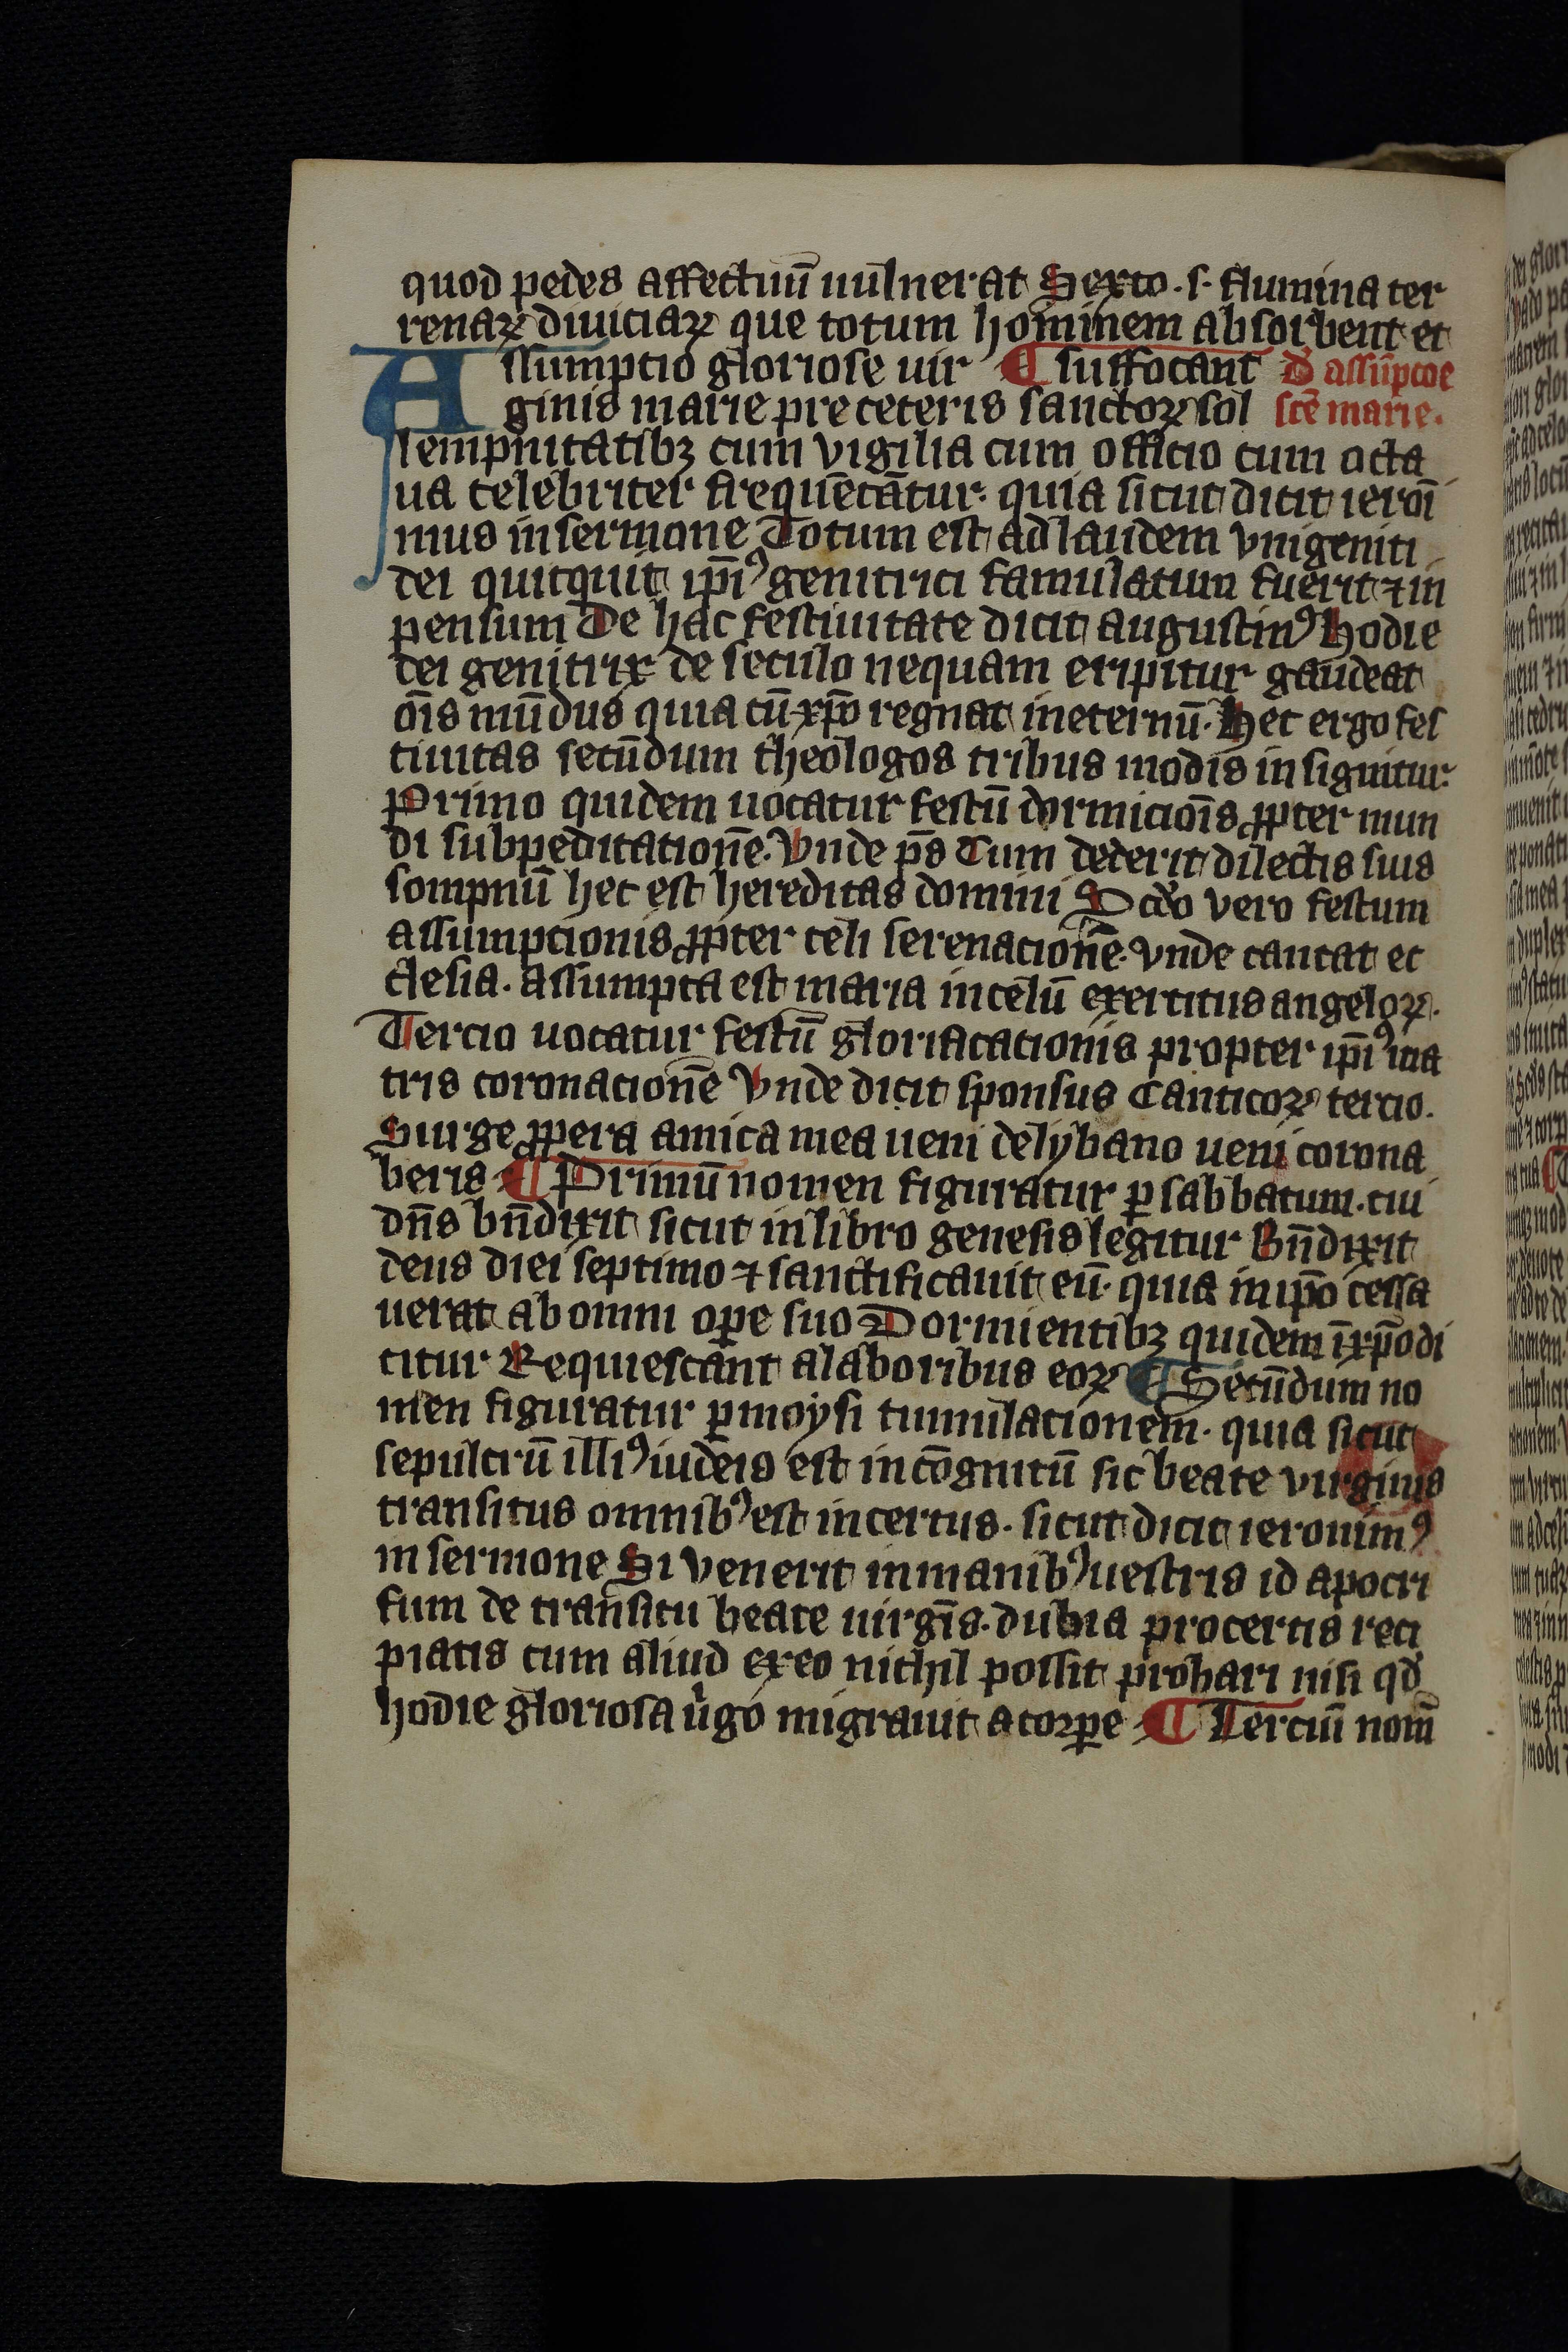 quod pedes affectuū uulnerat Sexto .s. flumina ter
renaꝝ diuiciaꝝ que totum hominem absorbent et
Assumptio gloriose uir ¶ suffocant De assūpcōe
ginis marie pre ceteris sanctoꝝ sol scē marie.
lempnitatibꝫ cum vigilia cum officio cum octa
ua celebriter frequētātur. quia sicut dicit ieroī
mus in sermone Totum est ad laudem vnigeniti
dei quitquit ip̄iꝰ genitrici famulatum fuerit ⁊ in
pensum De hac festiuitate dicit augustinꝰ Hodie
dei genitrix de seculo nequam eripitur gaudeat
oīs mūdus quia cū xp̄o regnat in eternū. Hec ergo fes
tiuitas secūdum theologos tribus modis insignitur.
Primo quidem uocatur festū dormicioīs ꝓpter mun
di subpeditationē. Vnde p̄s Cum dederit dilectis suis
sompnū hec est hereditas domini Scdo vero festum
assumpcionis ꝓpter celi serenacionē. vnde cantat ec
clesia. Assumpta est maria in celū exercitus angeloꝝ.
Tercio uocatur festū glorificacationis propter ip̄iꝰ ma
tris coronacionē Vnde dicit sponsus Canticoꝝ tercio.
Surge ꝓpera amica mea ueni de lybano ueni corona
beris ¶ Primū nomen figuratur ꝑ sabbatum. cui
dn̄s bn̄dixit sicut in libro genesis legitur Bn̄dixit
deus diei septimo ⁊ sanctificauit eū. quia in ip̄o cessa
uerat ab omni oꝑe suo Dormientibꝫ quidem ī xp̄o di
citur Requiescant a laboribus eoꝝ ¶ Secūdum no
men figuratur ꝑ moysi tumulacionem. quia sicut
sepulcrū illiꝰ iudeis est incōgnitū sic beate virginis
transitus omnibꝰ est incertus. sicut dicit ieronimꝰ
in sermone Si venerit in manibꝰ uestris id apocri
fum de transitu beate uirgīs. dubia pro certis reci
piatis cum aliud ex eo nichil possit probari nisi qd
hodie gloriosa u̇go migrauit a corꝑe ¶ Terciū nom̄